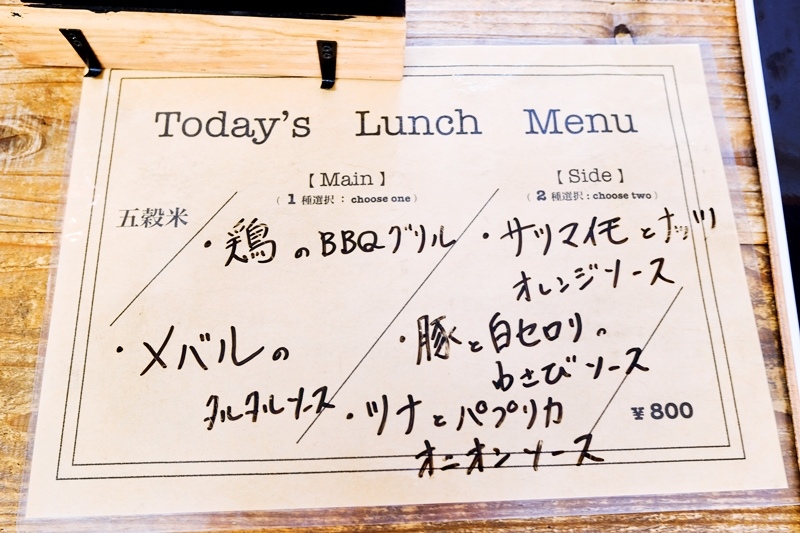 Today's Lunch Menu
五穀米
【Main】
( 1 種選択 : choose one )
・鶏のBBQグリル
・メバルの
タルタルソース
【Side】
( 2 種選択 : choose two )
・サツマイモとナッツ
オレンジソース
・豚と白セロリの
わさびソース
・ツナとパプリカ
オニオンソース
¥800